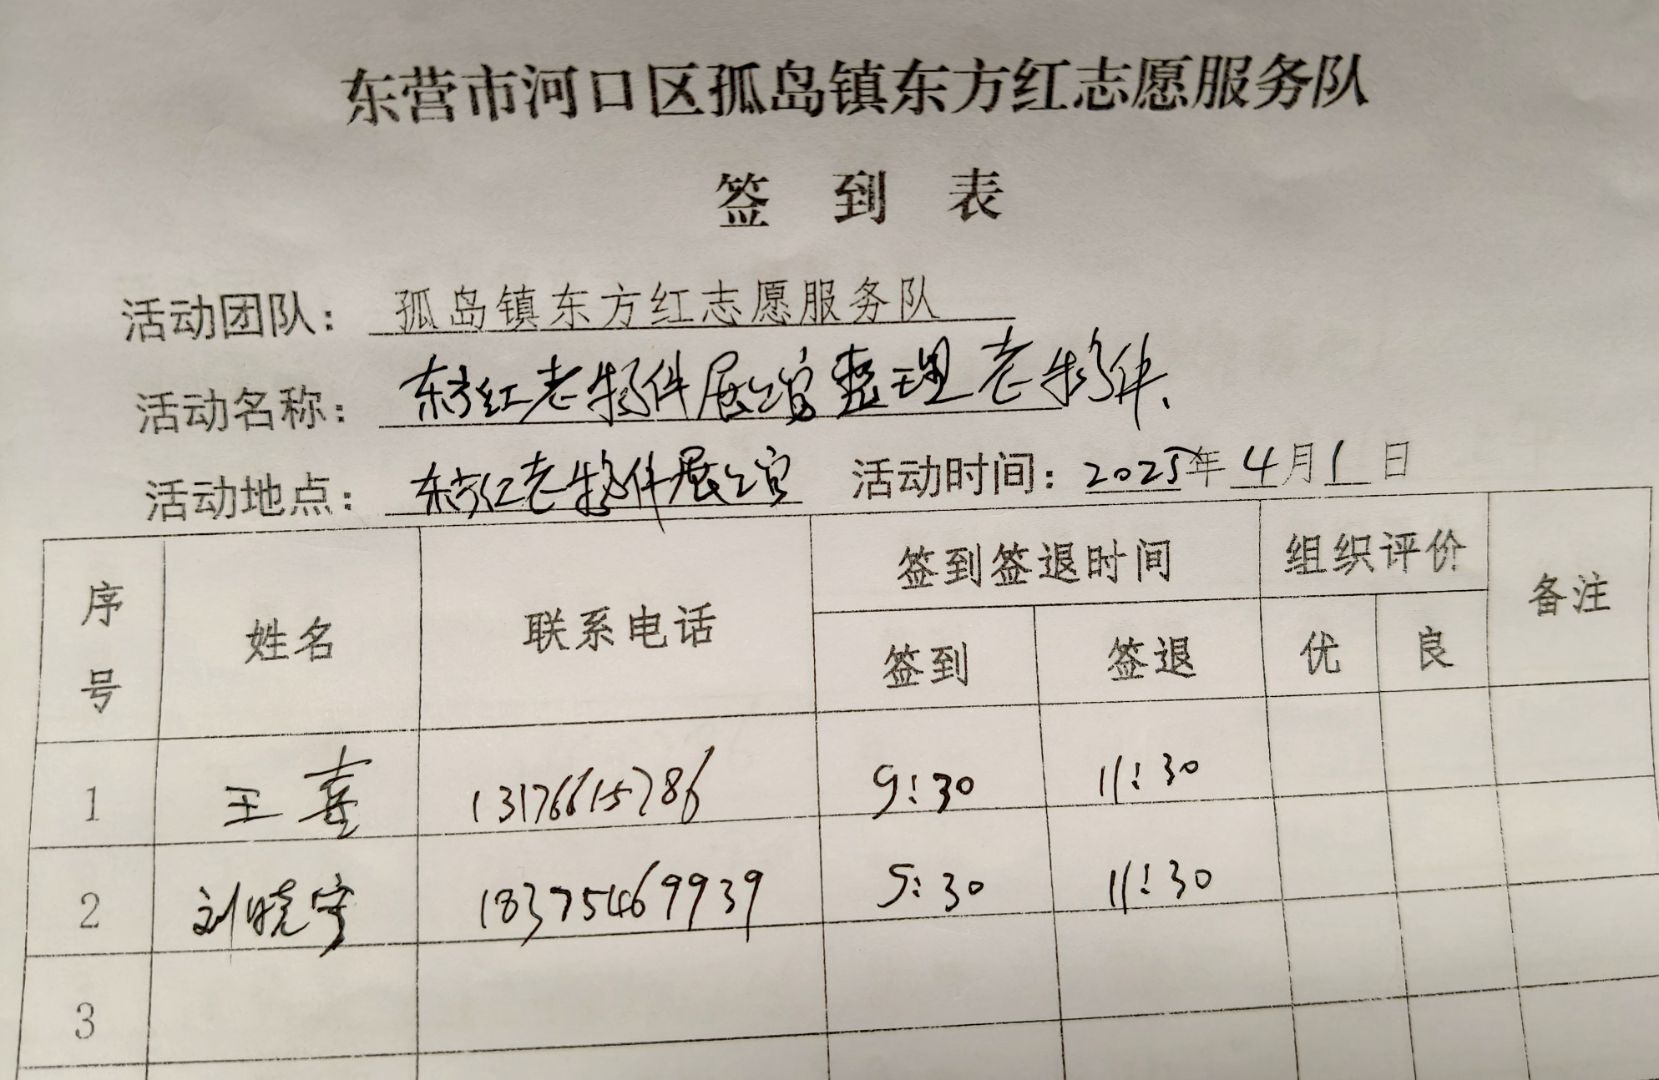 东营市河口区孤岛镇东方红志愿服务队
签到表
活动团队：孤岛镇东方红志愿服务队
活动名称：东方红老物件展馆整理老物件、
活动地点：东方红老物件展馆 活动时间：2025年4月1日
序号 姓名 联系电话 签到签退时间 组织评价 备注
签到 签退 优 良
1 王喜 13176615786 9:30 11:30
2 刘晓宇 18375469939 9:30 11:30
3